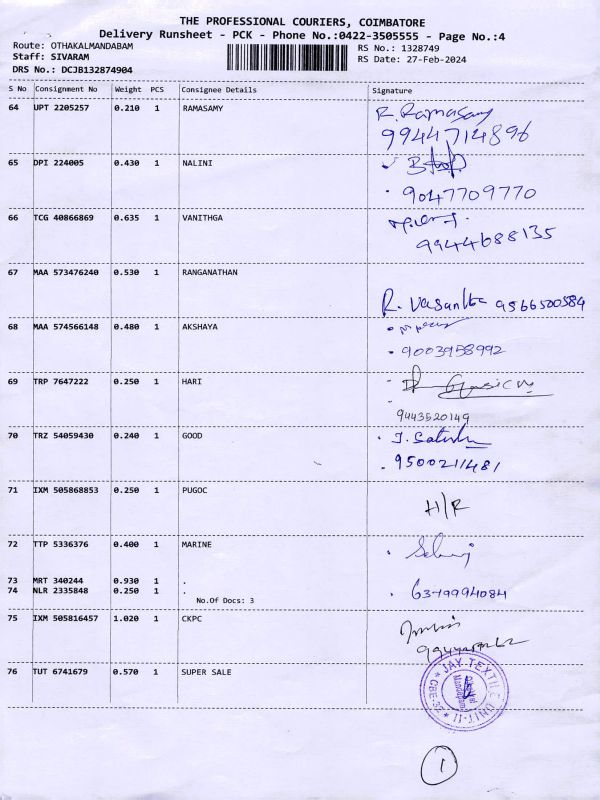 THE PROFESSIONAL COURIERS, COIMBATORE
Delivery Runsheet - PCK - Phone No.:0422-3505555 - Page No.:4
Route: OTHAKALMANDABAM
RS No.: 1328749
Staff: SIVARAM
RS Date: 27-Feb-2024
DRS No.: DCJB132874904
S No Consignment No Weight PCS Consignee Details Signature
64 UPT 2205257 0.210 1 RAMASAMY R. Ramasamy
9944714896
65 DPI 224005 0.430 1 NALINI
9047709770
66 TCG 40866869 0.635 1 VANITHGA
9944688135
67 MAA 573476240 0.530 1 RANGANATHAN
R. Vasantha 9566500584
68 MAA 574566148 0.480 1 AKSHAYA
9003958992
69 TRP 7647222 0.250 1 HARI
9443520149
70 TRZ 54059430 0.240 1 GOOD J. Satish
9500211481
71 IXM 505868853 0.250 1 PUGOC
H/R
72 TTP 5336376 0.400 1 MARINE
73 MRT 340244 0.930 1 .
74 NLR 2335848 0.250 1 .
No.Of Docs: 3
75 IXM 505816457 1.020 1 CKPC
76 TUT 6741679 0.570 1 SUPER SALE
JAY TEXTILE UNIT-II
CBE-32
1